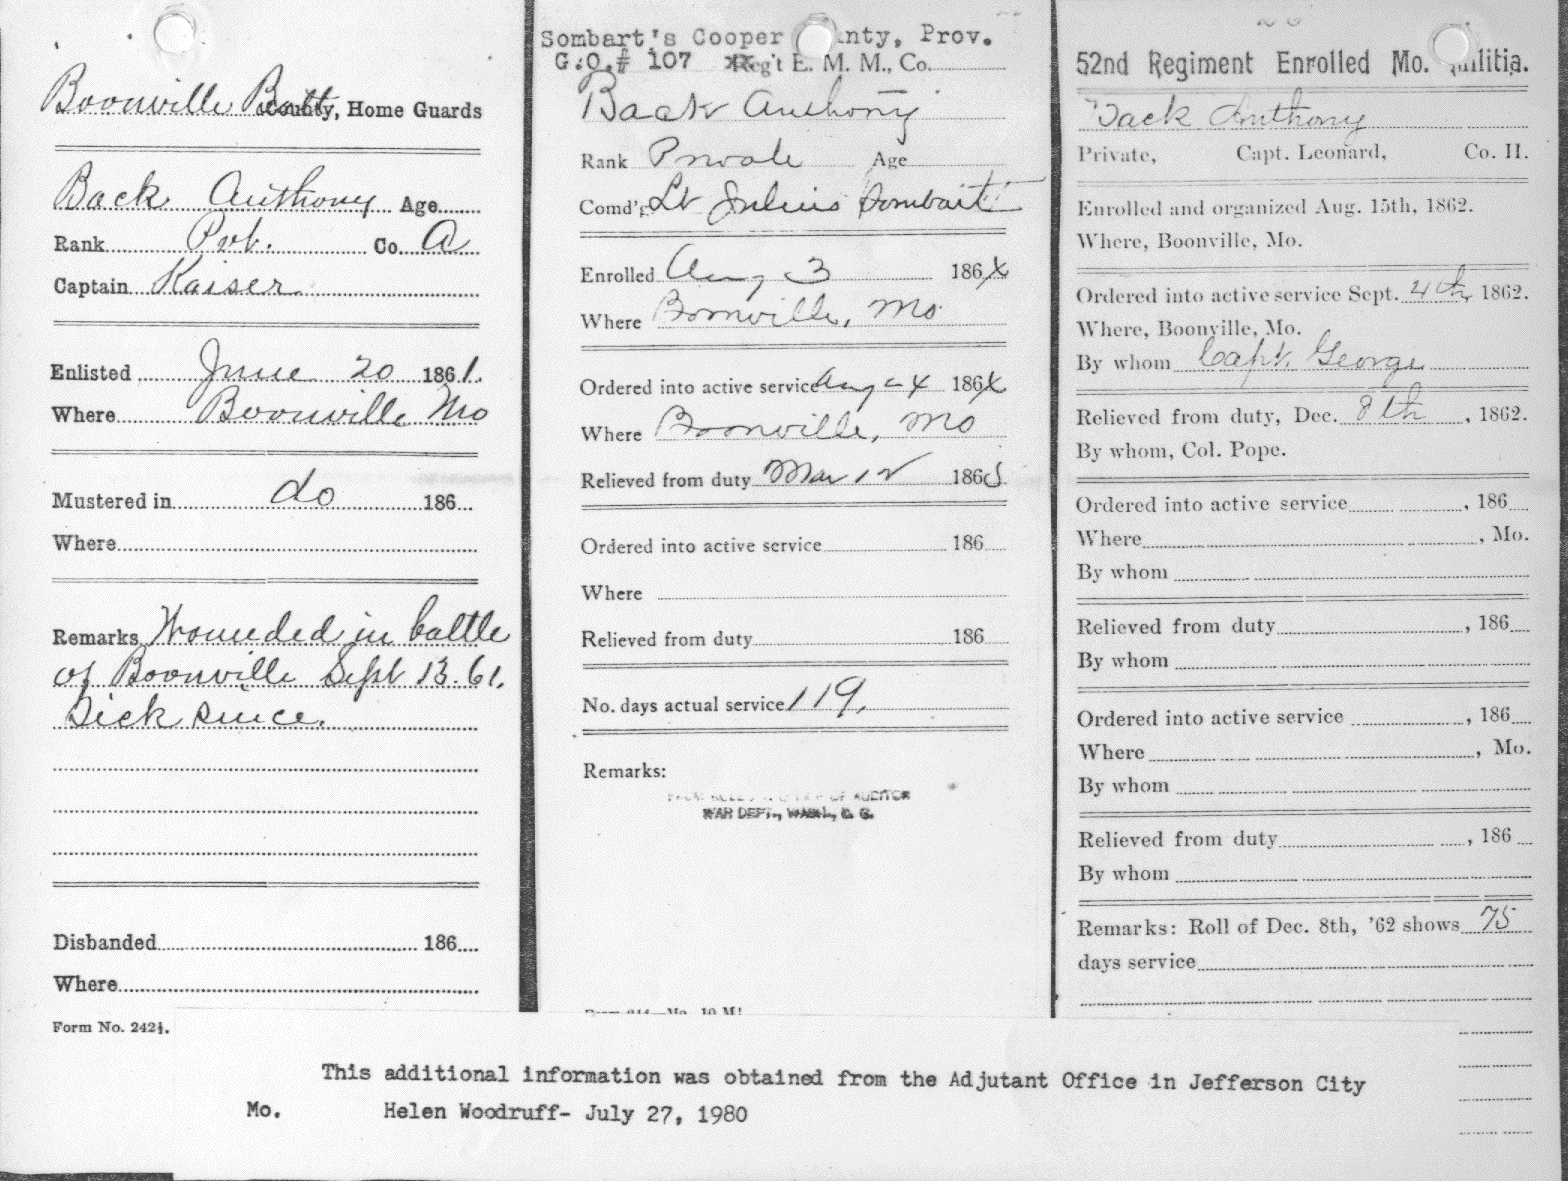 Boonville Batt County, Home Guards
Back Anthony Age
Rank Pvt. Co. A
Captain Kaiser
Enlisted June 20 1861.
Where Boonville Mo
Mustered in do 186
Where
Remarks Wounded in battle
of Boonville Sept 13.61.
Sick since.
Disbanded 186
Where
Form No. 242½.
Sombart's Cooper nty, Prov.
G.O.# 107 Reg't E. M. M., Co.
Back Anthony
Rank Private Age
Comd'g Lt Julius Sombart
Enrolled Aug 3 1864
Where Boonville, Mo
Ordered into active service Aug 4 1864
Where Boonville, Mo
Relieved from duty Mar 12 1865
Ordered into active service 186
Where
Relieved from duty 186
No. days actual service 119.
Remarks:
OF AUDITOR
WAR DEPT., WASH., D. C.
52nd Regiment Enrolled Mo. Militia.
Back Anthony
Private, Capt. Leonard, Co. H.
Enrolled and organized Aug. 15th, 1862.
Where, Boonville, Mo.
Ordered into active service Sept. 4th, 1862.
Where, Boonville, Mo.
By whom Capt. George
Relieved from duty, Dec. 8th, 1862.
By whom, Col. Pope.
Ordered into active service , 186
Where , Mo.
By whom
Relieved from duty , 186
By whom
Ordered into active service , 186
Where , Mo.
By whom
Relieved from duty , 186
By whom
Remarks: Roll of Dec. 8th, '62 shows 75
days service
This additional information was obtained from the Adjutant Office in Jefferson City
Mo. Helen Woodruff- July 27, 1980